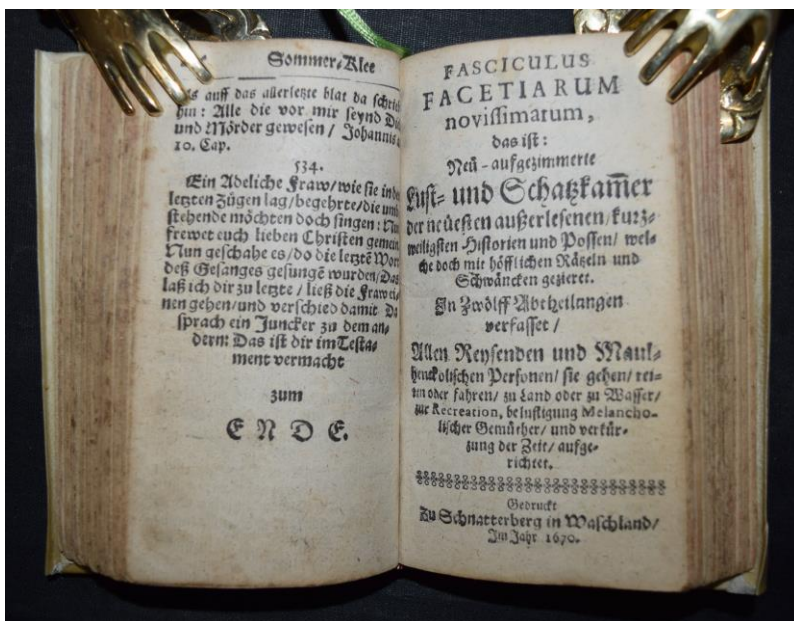 Sommer-Klee
auff das allerletzte blat da schrieb
hin: Alle die vor mir seynd
und Mörder gewesen / Johannis
10. Cap.
534.
Ein Adeliche Fraw/wie sie in den
letzten Zügen lag/begehrte/die umb
stehende möchten doch singen: Nun
frewet euch lieben Christen gemein
Nun geschahe es/do die letztē Wort
deß Gesanges gesungē wurden/Das
laß ich dir zu letzte / ließ die Fraw ei-
nen gehen/und verschied damit Da
sprach ein Juncker zu dem an-
dern: Das ist dir im Testa-
ment vermacht
zum
ENDE.
FASCICULUS
FACETIARUM
novissimarum,
das ist:
Neü-aufgezimmerte
Lust- und Schatzkam̃er
der neüesten außerlesenen/kurz-
weiligsten Historien und Possen/ wel-
che doch mit höfflichen Rätzeln und
Schwäncken gezieret.
In Zwölff Abtheilungen
verfasset /
Allen Reysenden und Maul-
henckolischen Personen/ sie gehen/ rei-
ten oder fahren/ zu Land oder zu Wasser/
zur Recreation, belustigung Melancho-
lischer Gemüther/ und verkür-
zung der Zeit/ aufge-
richtet.
Gedruckt
Zu Schnatterberg in Waschland/
Im Jahr 1670.